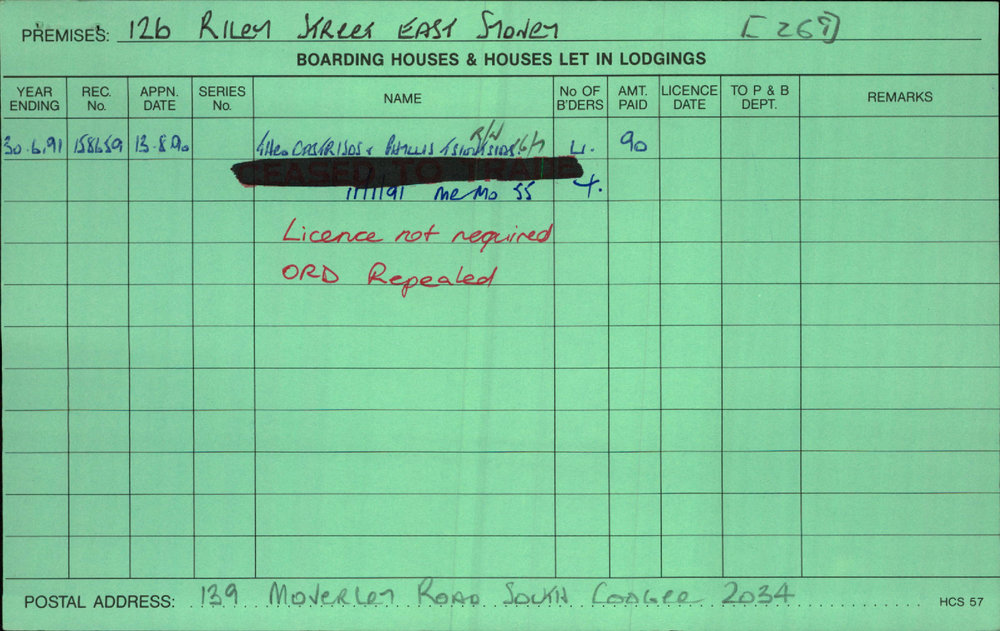 PREMISES: 126 RILEY STREET EAST SYDNEY [267]
BOARDING HOUSES & HOUSES LET IN LODGINGS
YEAR ENDING REC. No. APPN. DATE SERIES No. NAME No OF B'DERS AMT. PAID LICENCE DATE TO P & B DEPT. REMARKS
30.6.91 158659 13.8.90 THEO CASTRISOS & PHYLLIS 4. 90
CEASED TO TRADE
11/1/91 MEMO 55
Licence not required
ORD Repealed
POSTAL ADDRESS: 139 MOVERLEY ROAD SOUTH COOGEE 2034
HCS 57